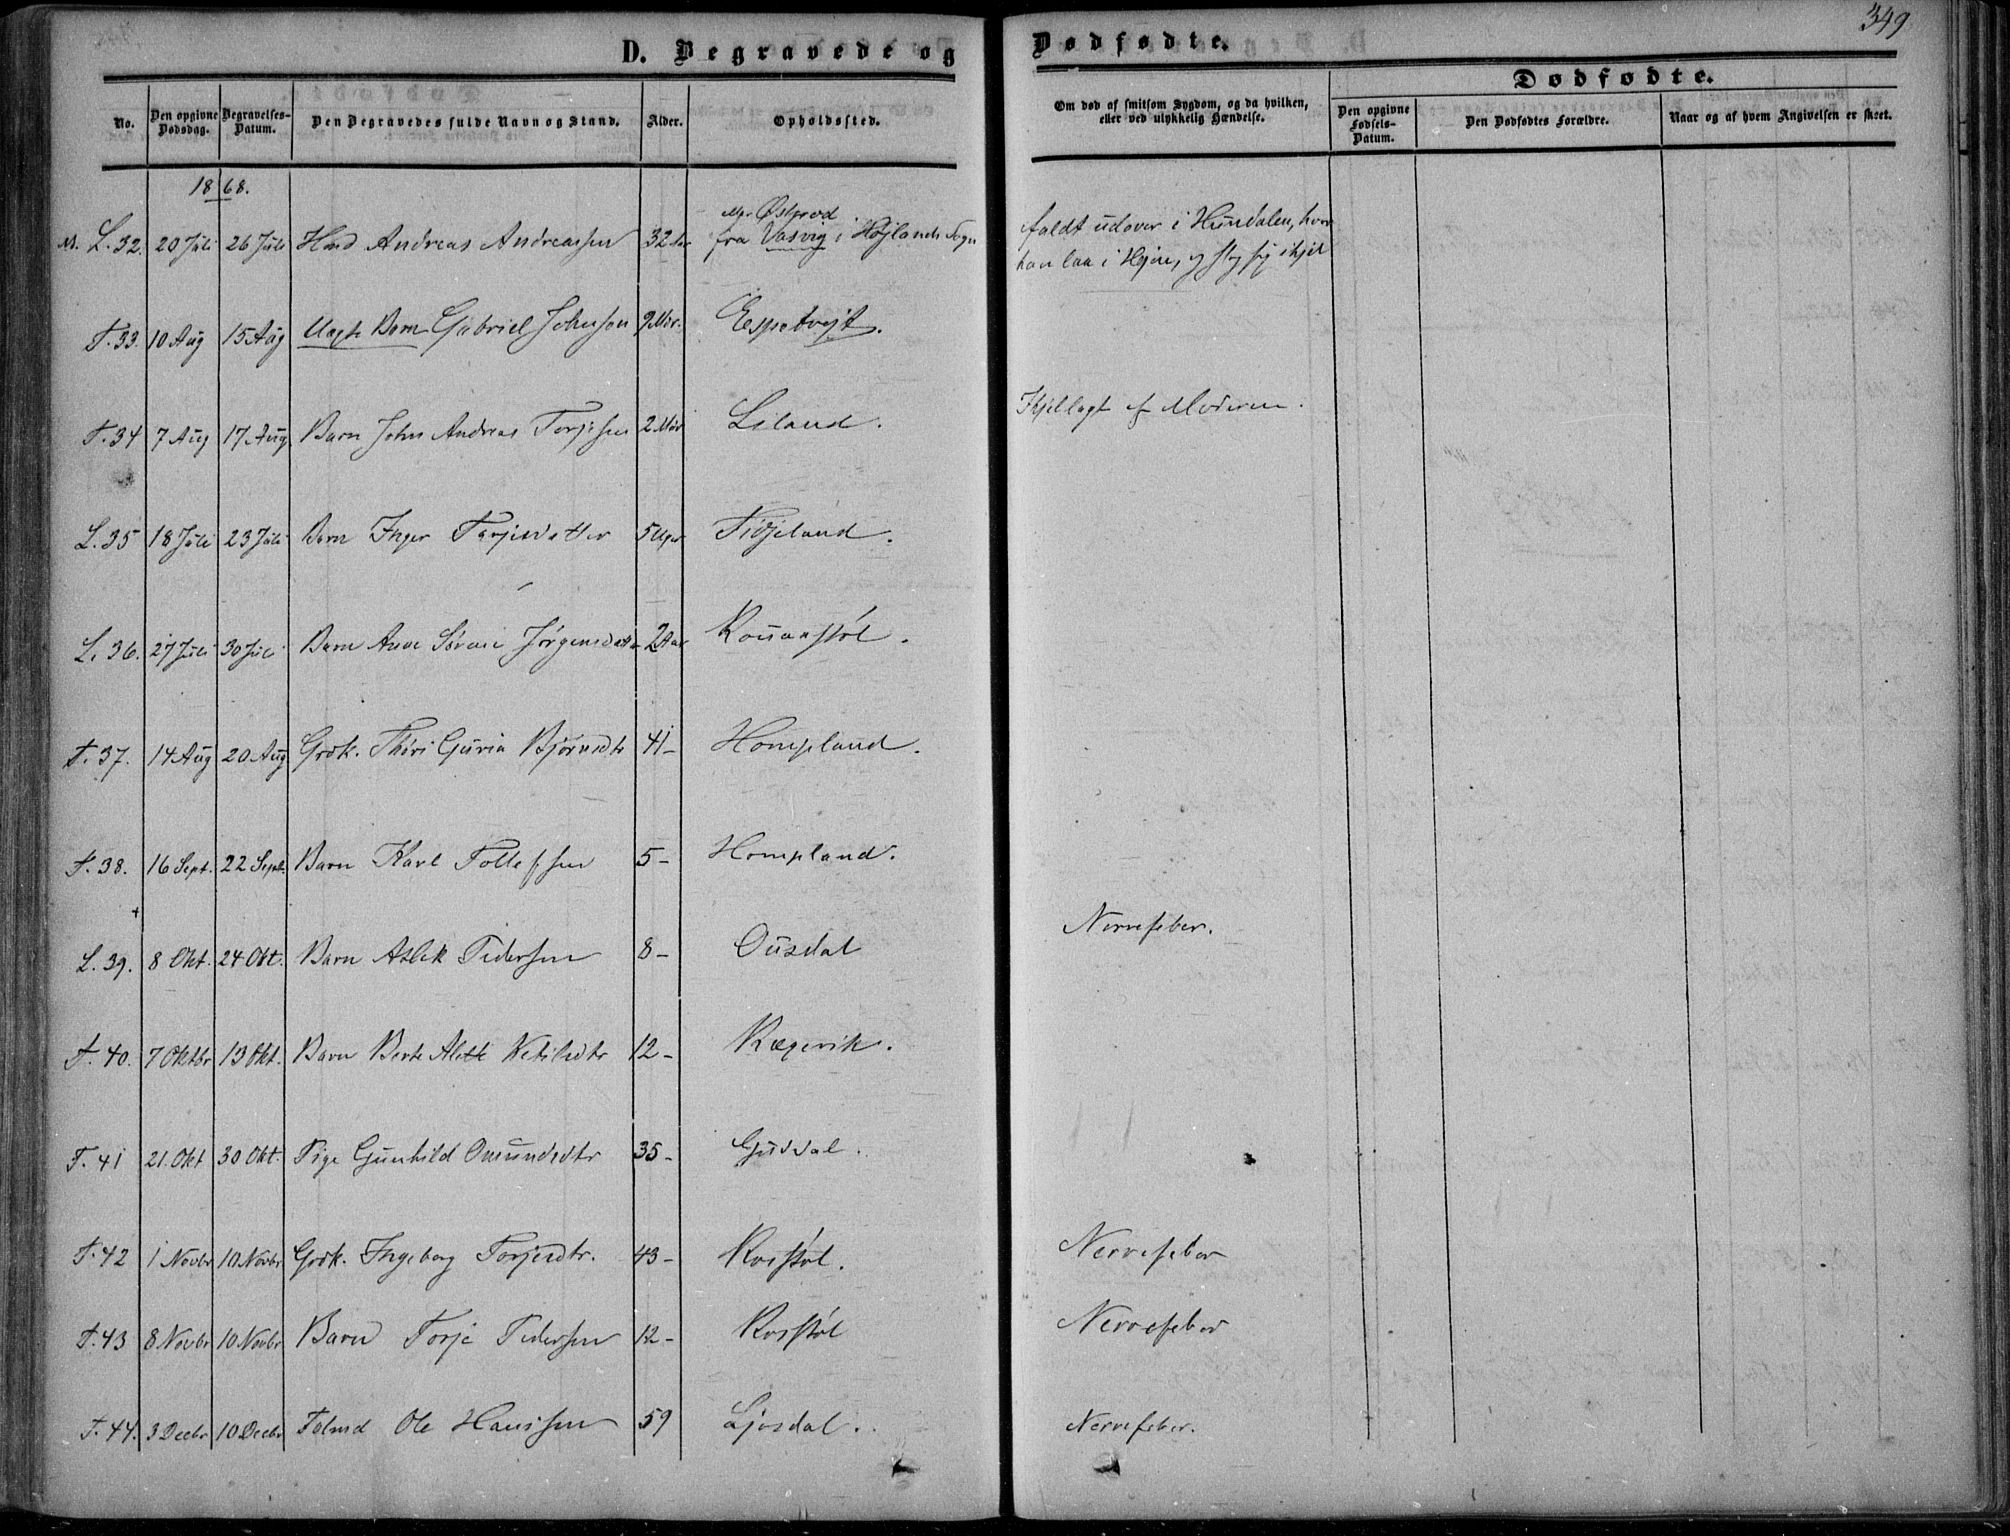 349
D. Begravede og Dødfødte.
Dødfødte.
No. Den opgivne Dødsdag. Begravelses-Datum. Den Begravedes fulde Navn og Stand. Alder. Opholdssted. Om død af smitsom Sygdom, og da hvilken, eller ved ulykkelig Hændelse. Den opgivne Fødsels-Datum. Den Dødfødtes Forældre. Naar og af hvem Angivelsen er skeet.
1868.
L. 32. 20 Juli 26 Juli Andreas Andreassen 32 Aar fra Vasvig i Højlands Sogn faldt udover i Hundalen, hvor
han laa i og slog sig ihjel
F. 33. 10 Aug 15 Aug Uægte Barn Gabriel Johnsen 9 Mdr. Espetvejt.
F. 34 7 Aug 17 Aug Barn John Andreas Torjesen 2 Mdr Liland. Ihjellagt af Moderen.
L. 35 18 Juli 23 Juli Barn Inger Torjesdatter 5 Uger Fidjeland.
L. 36. 27 Juli 30 Juli Barn Ane Sørine Jørgensdatter 2 Aar
F. 37. 14 Aug 20 Aug Gdk. Thori Guria Bjørnsdtr 41 - Hompland.
F. 38. 16 Sept. 22 Sept. Barn Karl Tollefsen 5 - Hompland.
L. 39. 8 Okt. 24 Okt. Barn Aslak Pedersen 8 - Ousdal Nervefeber.
F. 40. 7 Oktbr 13 Okt. Barn Berte Alette Ketilsdtr 12 - Rægevik.
F. 41 21. Okt 30 Okt. Pige Gunhild Omundsdtr 35 - Guddal.
F. 42 1 Novbr 10 Novbr Gdk. Ingeborg Torjesdtr. 43 - Rosstøl. Nervefeber
F. 43 8 Novbr 10 Novbr Barn Torje Pedersen 12 - Rosstøl Nervefeber
F. 44. 3 Decbr 10 Decbr Ole Hanssen 59 Ljosdal. Nervefeber.